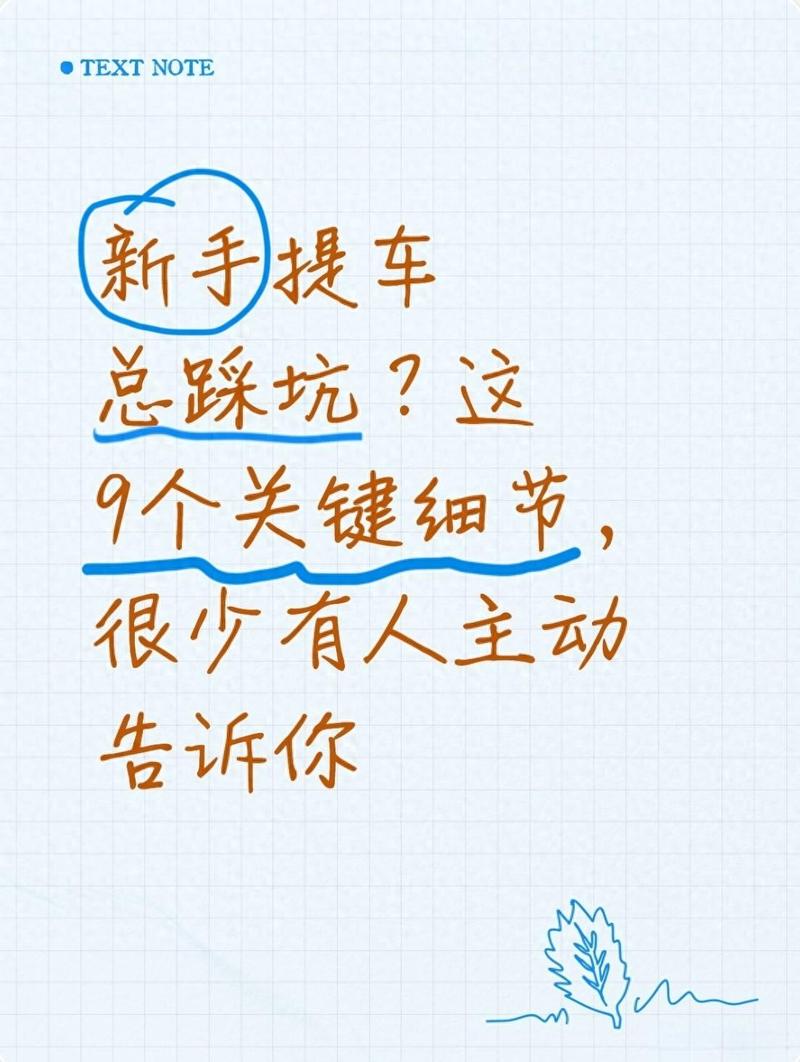 TEXT NOTE
新手提车
总踩坑？这
9个关键细节，
很少有人主动
告诉你